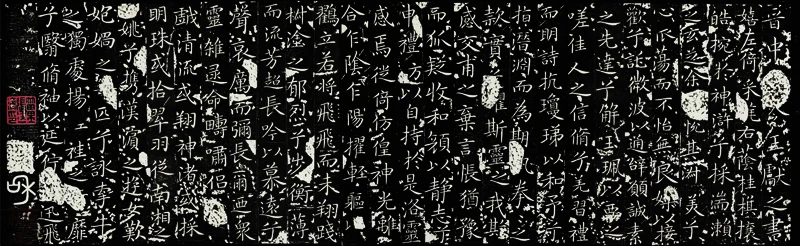 晋中書令王獻之書
嬉左倚采旄右蔭桂旗攘
皓捥於神滸兮採湍瀨
之玄芝余情悅其淑美兮
心振蕩而不怡無良媒以接
歡兮託微波以通辭願誠素
之先達兮解玉珮以要之
嗟佳人之信脩兮羌習禮
而明詩抗瓊珶以和予兮
指潛淵而為期執拳之
款實兮懼斯靈之我欺
感交甫之棄言悵猶豫
而狐疑收和顏以靜志兮
申禮防以自持於是洛靈
感焉徙倚仿偟神光離
合乍陰乍陽擢輕軀以
鶴立若將飛而未翔踐
椒塗之郁烈兮步蘅薄
而流芳超長吟以慕遠兮
聲哀厲而彌長爾迺衆
靈雜遝命疇嘯侶或
戲清流或翔神渚或採
明珠或拾翠羽從南湘之
二姚兮攜漢濱之遊女歎
妑媧之無匹兮詠牽牛
之獨處揚輕袿之猗靡
兮翳脩袖以延佇體迅飛